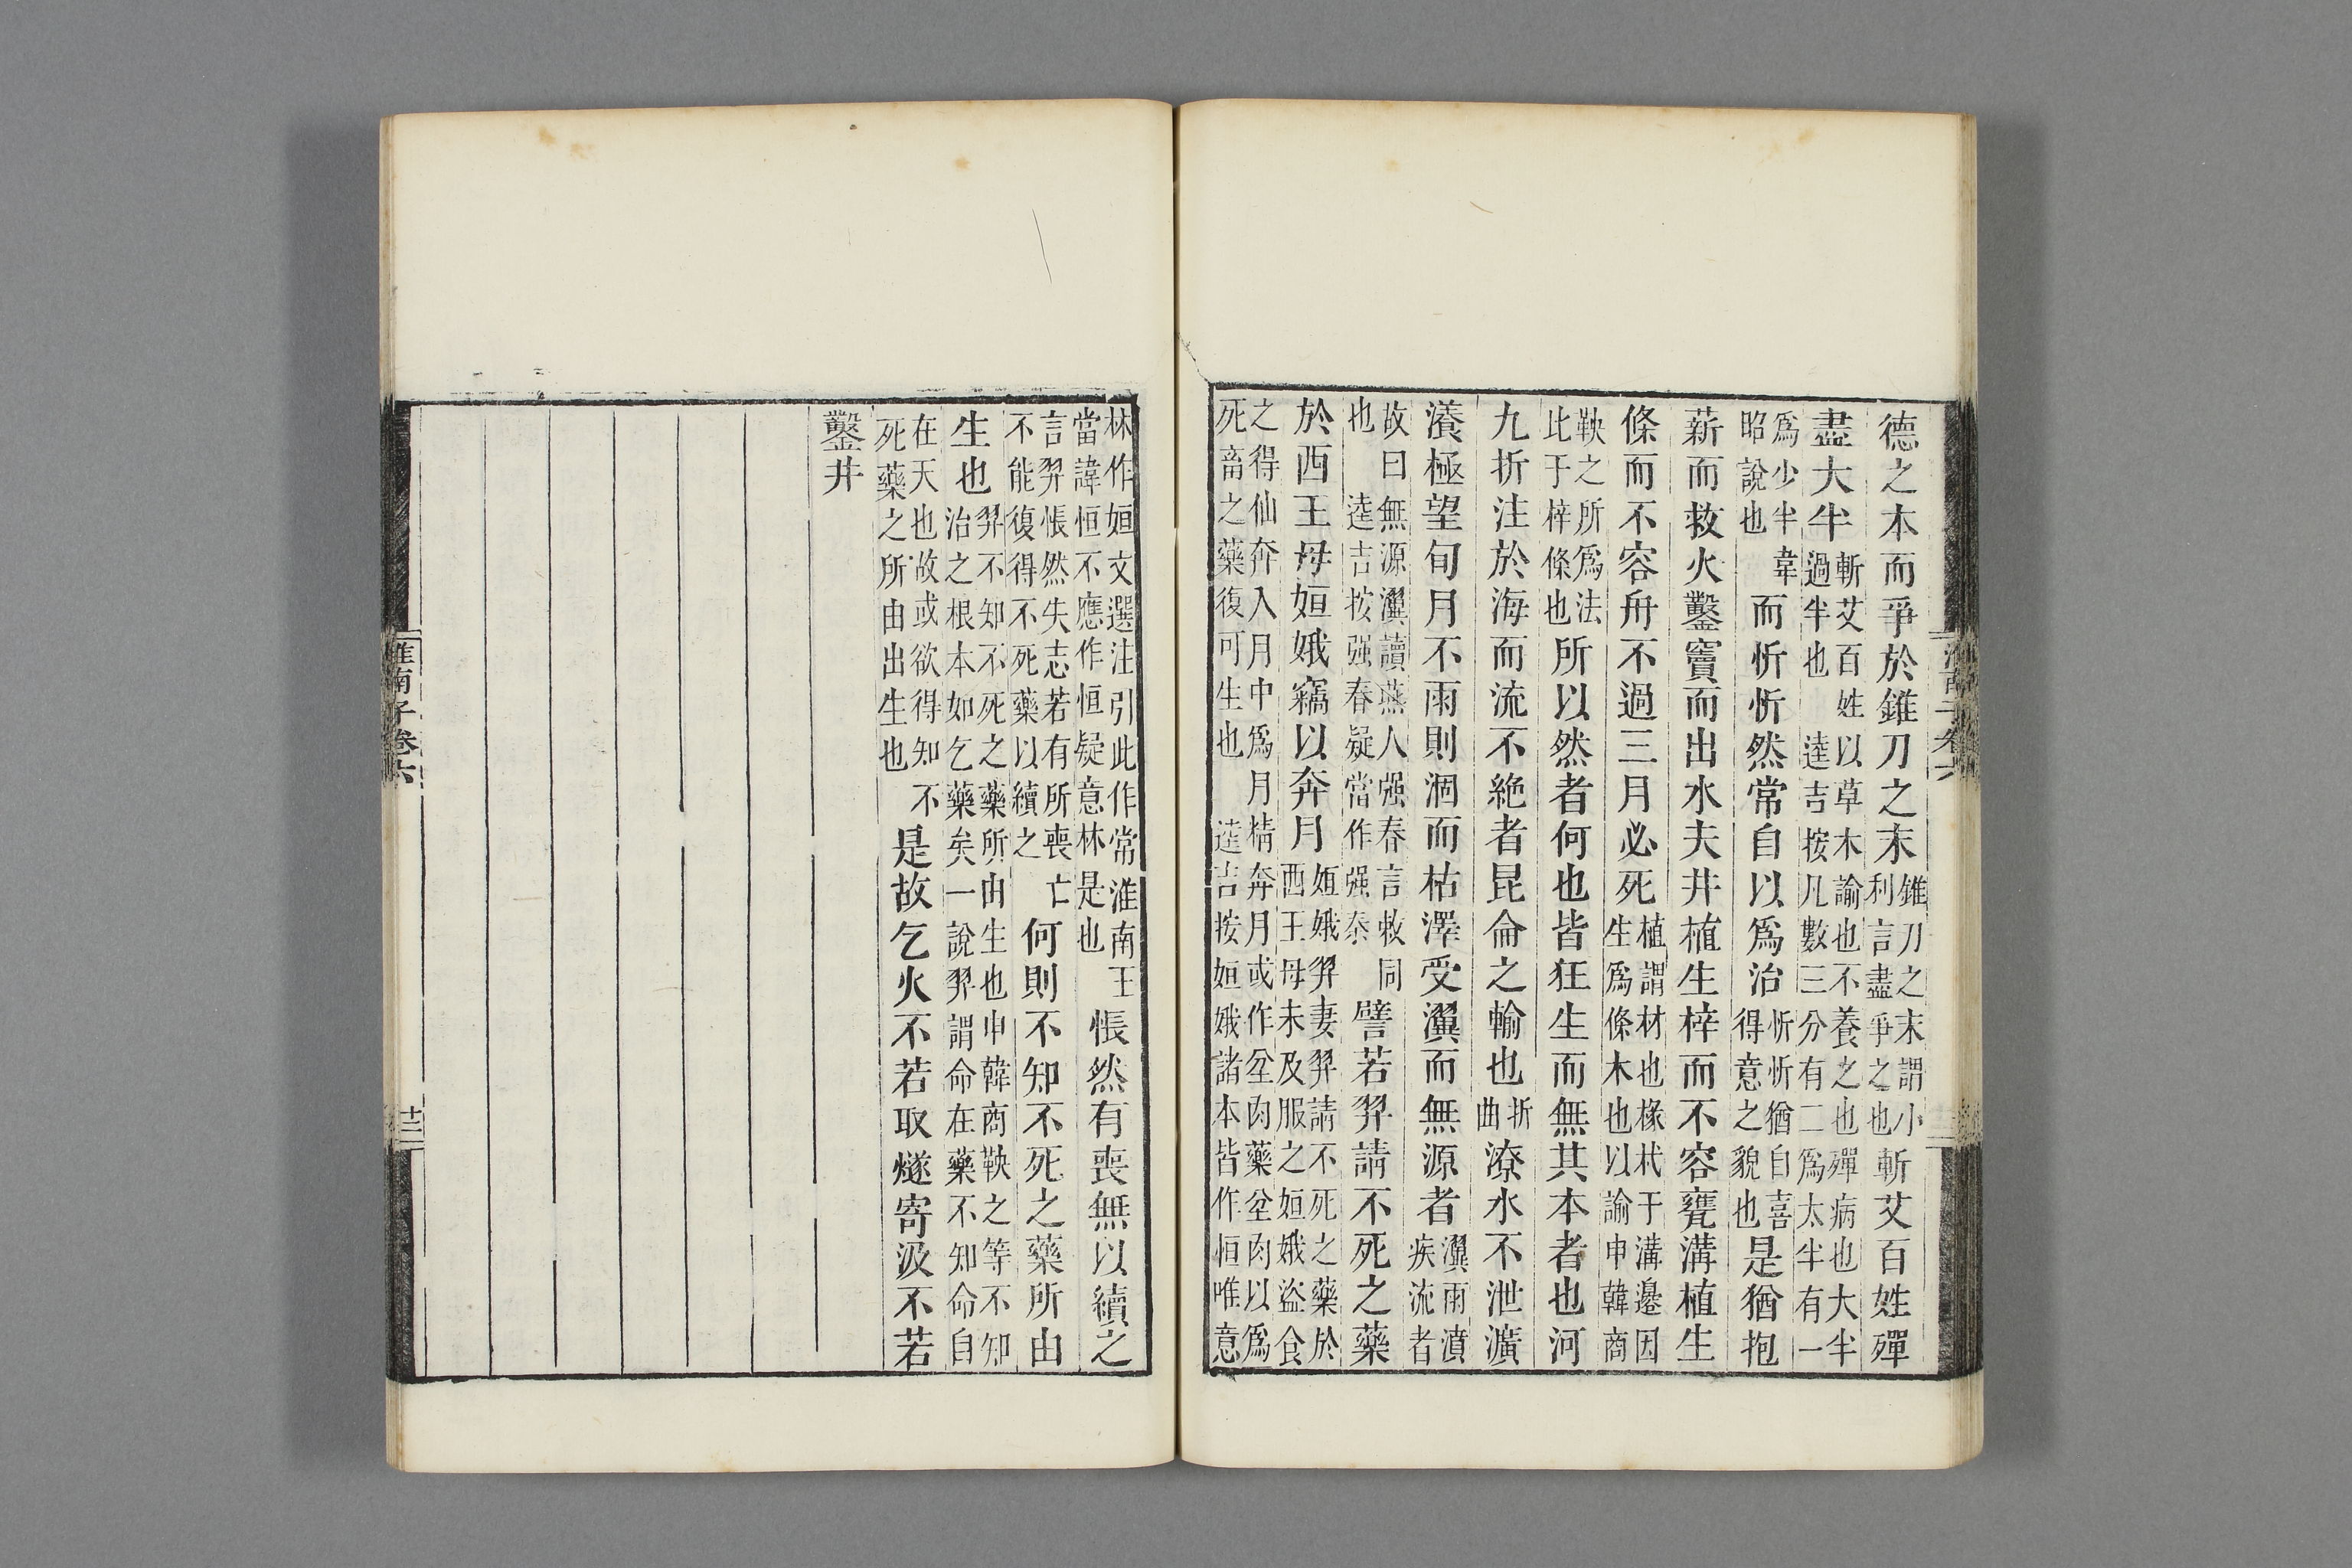 德之本而爭於錐刀之末錐刀之末謂小利言盡爭之也斬艾百姓殫
盡大半斬艾百姓以草木諭也不養之也殫病也大半過半也逵吉按凡數三分有二爲太半有一
爲少半韋昭說也而忻忻然常自以爲治忻忻猶自喜得意之貌也是猶抱
薪而救火鑿竇而出水夫井植生梓而不容甕溝植生
條而不容舟不過三月必死植謂材也椽杙于溝邊因生爲條木也以諭申韓商
鞅之所爲法此于梓條也所以然者何也皆狂生而無其本者也河
九折注於海而流不絶者昆侖之輸也折曲潦水不泄瀇
瀁極望旬月不雨則涸而枯澤受瀷而無源者瀷雨瀆疾流者
故曰無源瀷讀燕人强春言敕同也逵吉按强春疑當作强秦譬若羿請不死之藥
於西王母姮娥竊以奔月姮娥羿妻羿請不死之藥於西王母未及服之姮娥盜食
之得仙奔入月中爲月精奔月或作坌肉藥坌肉以爲死畜之藥復可生也逵吉按姮娥諸本皆作恒唯意
林作姮文選注引此作常淮南王當諱恒不應作恒疑意林是也悵然有喪無以續之
言羿悵然失志若有所喪亡不能復得不死藥以續之何則不知不死之藥所由
生也羿不知不死之藥所由生也申韓商鞅之等不知治之根本如乞藥矣一說羿謂命在藥不知命自
在天也故或欲得知不死藥之所由出生也不是故乞火不若取燧寄汲不若
鑿井
淮南子卷六